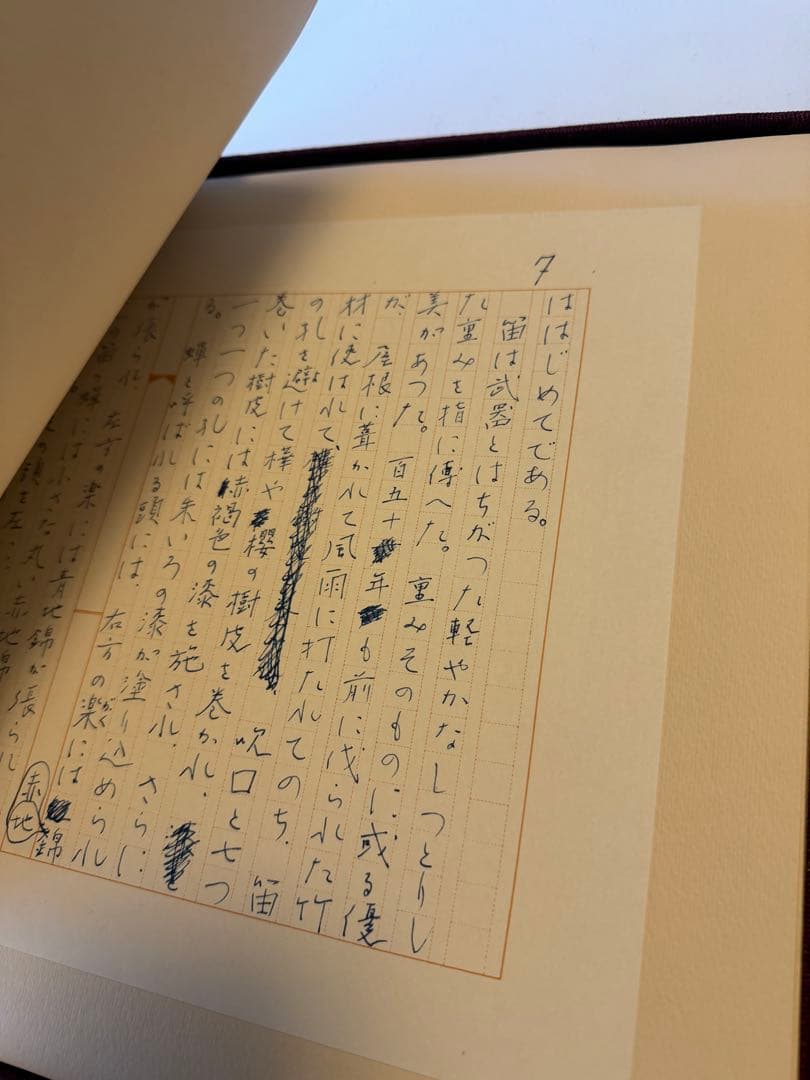 7
はじめてである。
笛は武器とはちがつた軽やかなしつとりし
た重みを指に傳へた。重みそのものに或る優
美があつた。百五十年も前に伐られた竹
が、屋根に葺かれて風雨に打たれてのち、笛
材に使はれて、
の孔を避けて樺や櫻の樹皮を巻かれ、
巻いた樹皮には赤褐色の漆を施され、さらに
一つ一つの孔には朱いろの漆が塗り込められ
る。
蝉と呼ばれる頭には、右方の楽には赤地錦
が張られ、左方の楽には青地錦が張られ